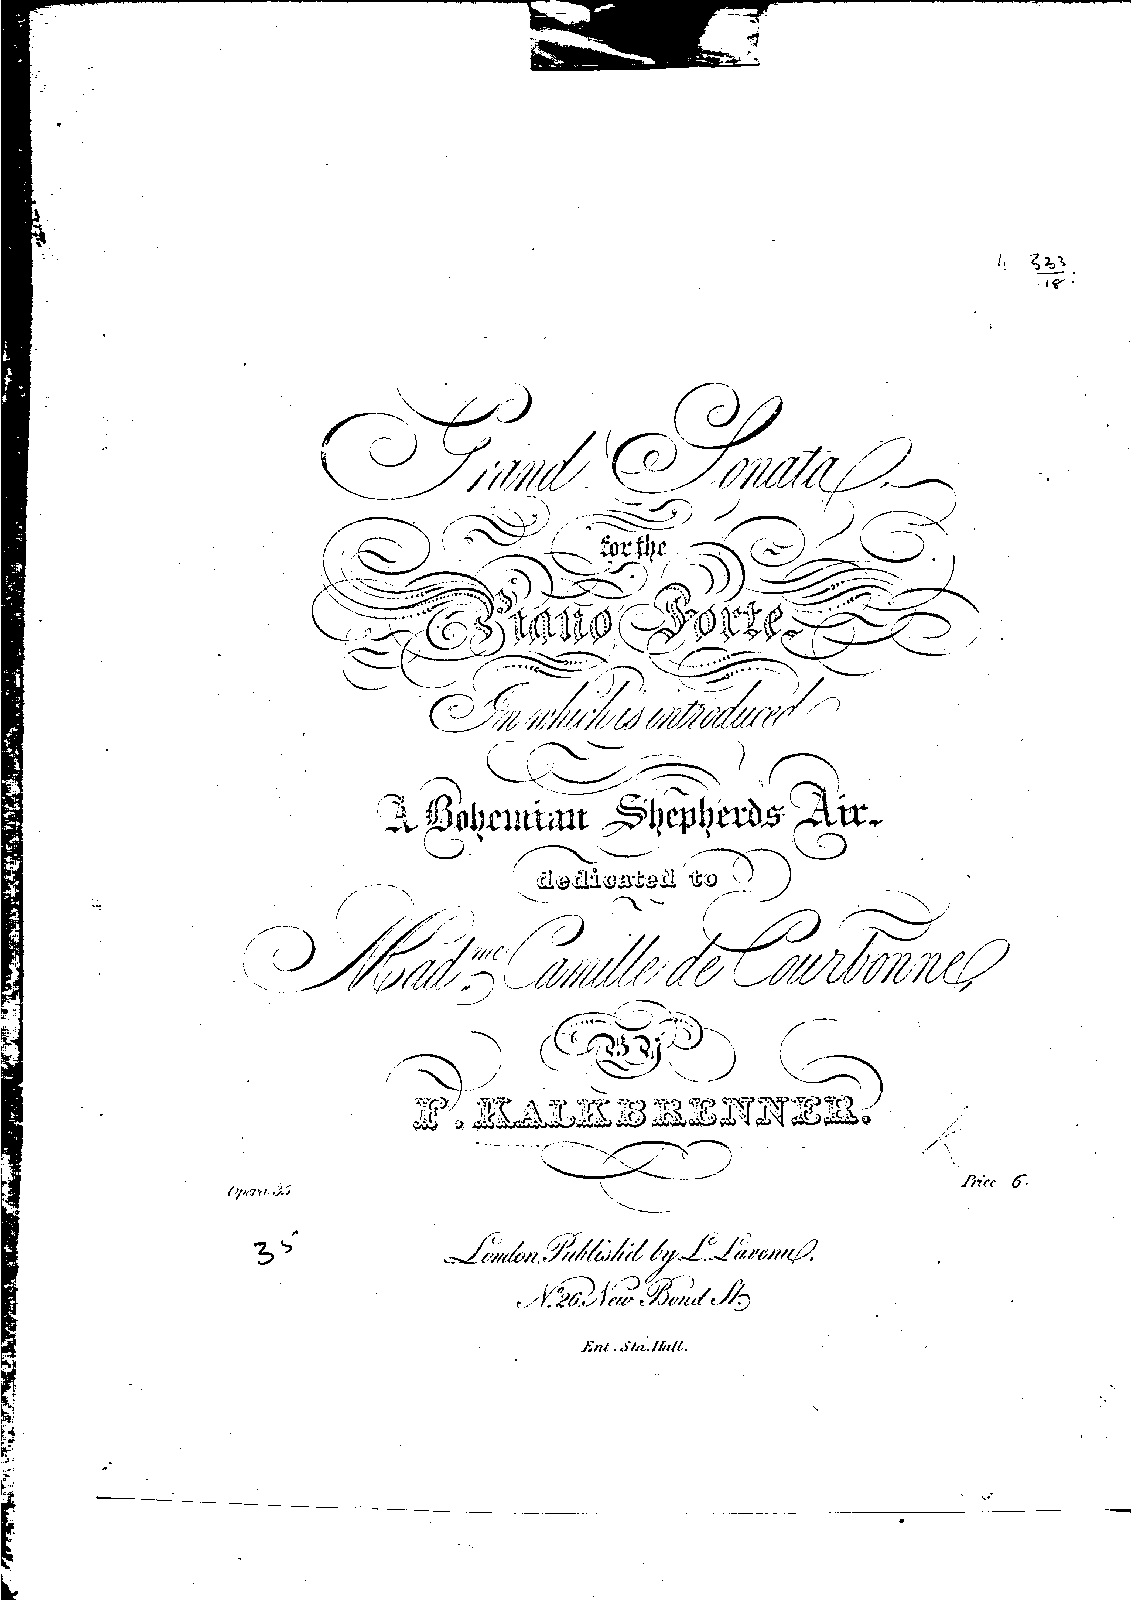 333
18
Grand Sonata
for the
Piano Forte.
In which is introduced
A Bohemian Shepherds Air.
dedicated to
Mad.me Camille de Courbonne,
BY
F. KALKBRENNER.
Opera 35
Price 6.
35
London, Publish'd by L. Lavenu.
No. 26. New Bond St.
Ent. Sta. Hall.